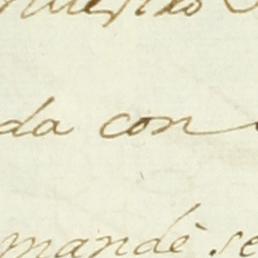 da con
mandè se